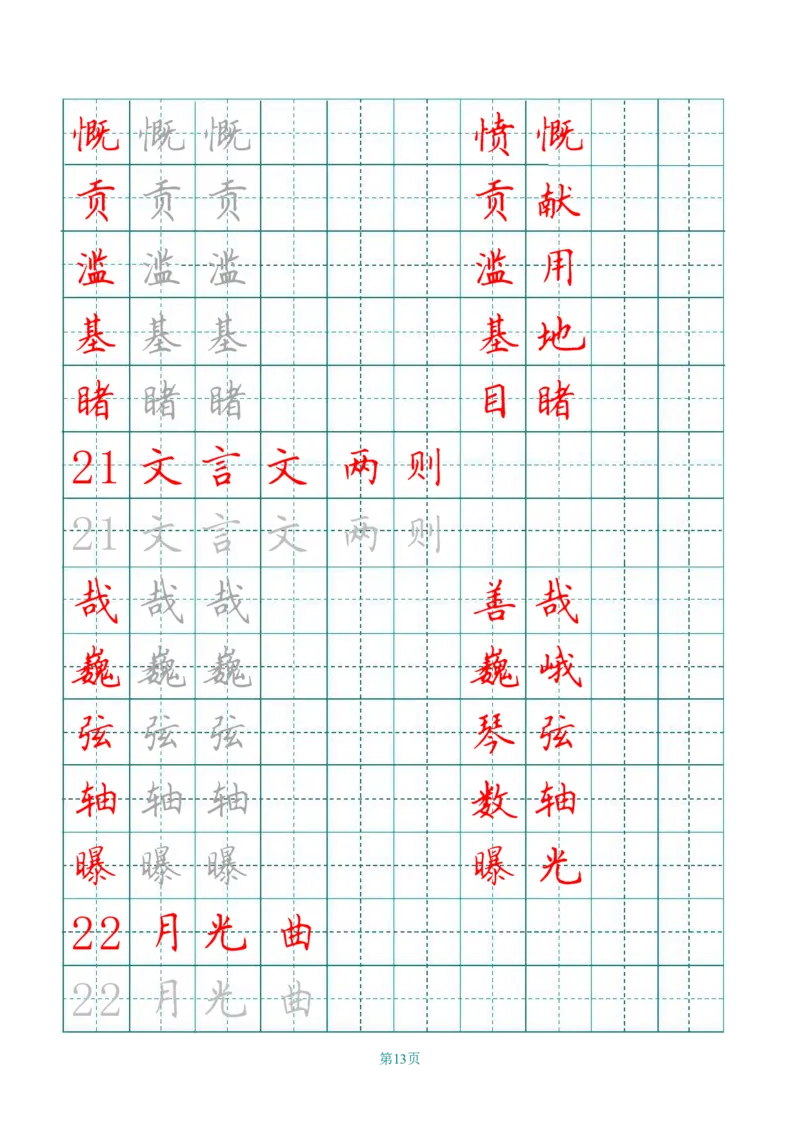 慨 慨 慨 愤 慨
贡 贡 贡 贡 献
滥 滥 滥 滥 用
基 基 基 基 地
睹 睹 睹 目 睹
21 文 言 文 两 则
21 文 言 文 两 则
哉 哉 哉 善 哉
巍 巍 巍 巍 峨
弦 弦 弦 琴 弦
轴 轴 轴 数 轴
曝 曝 曝 曝 光
22 月 光 曲
22 月 光 曲
第13页